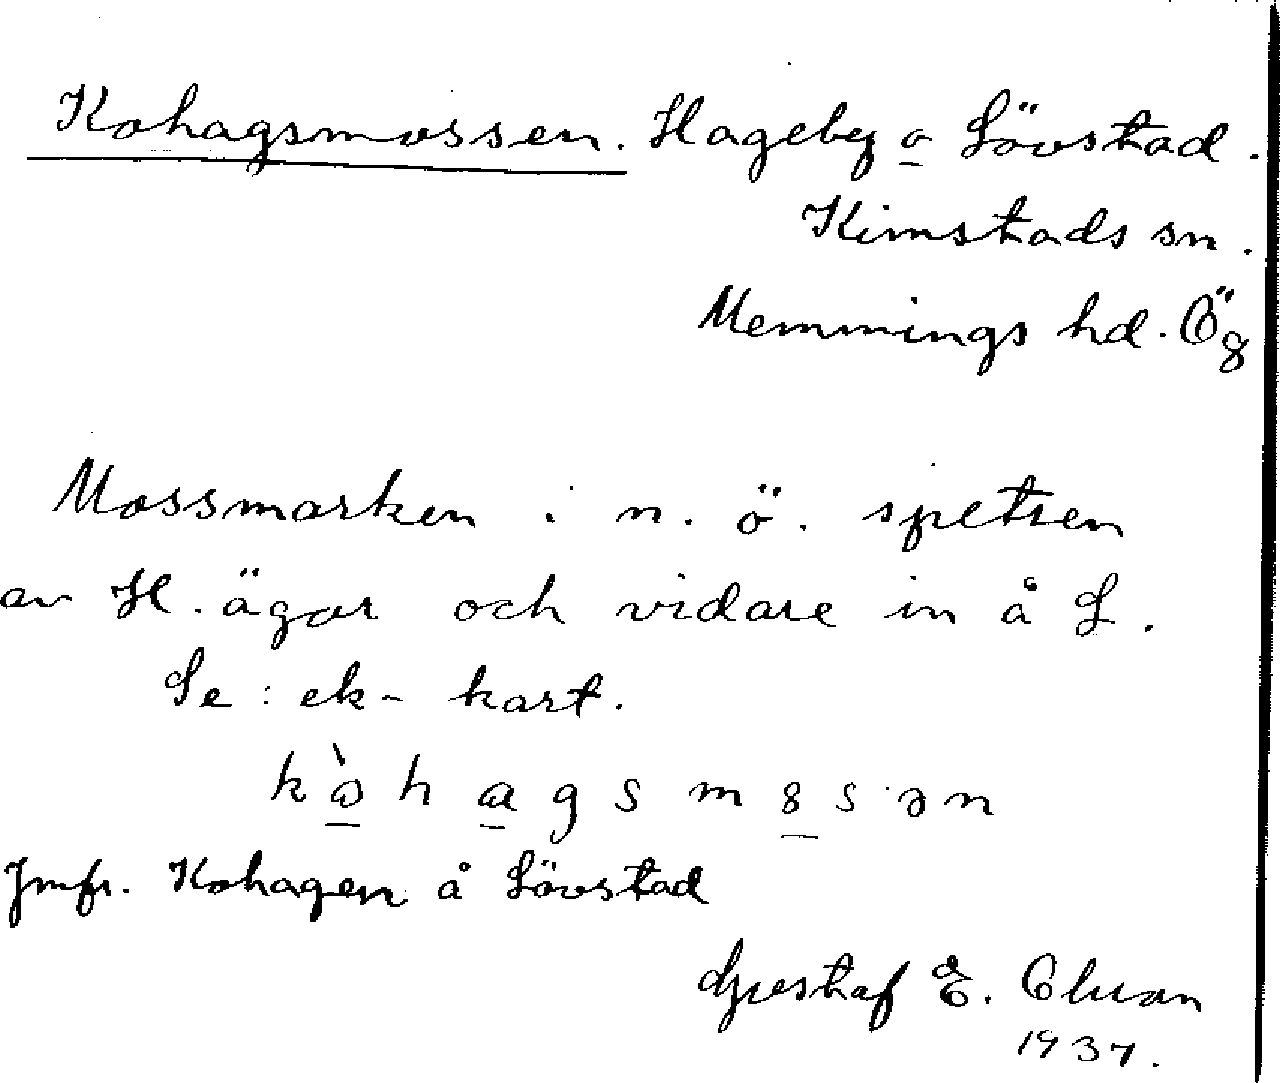 Kohagsmossen. Hageby o Lövstad.
Kimstads sn.
Memmings hd. Ög
Mossmarken i n. ö. spetsen
av H. ägor och vidare in å L.
Se: ek- kart.
hagsm
Jmfr. Kohagen å Lövstad
Gustaf E.
1937.